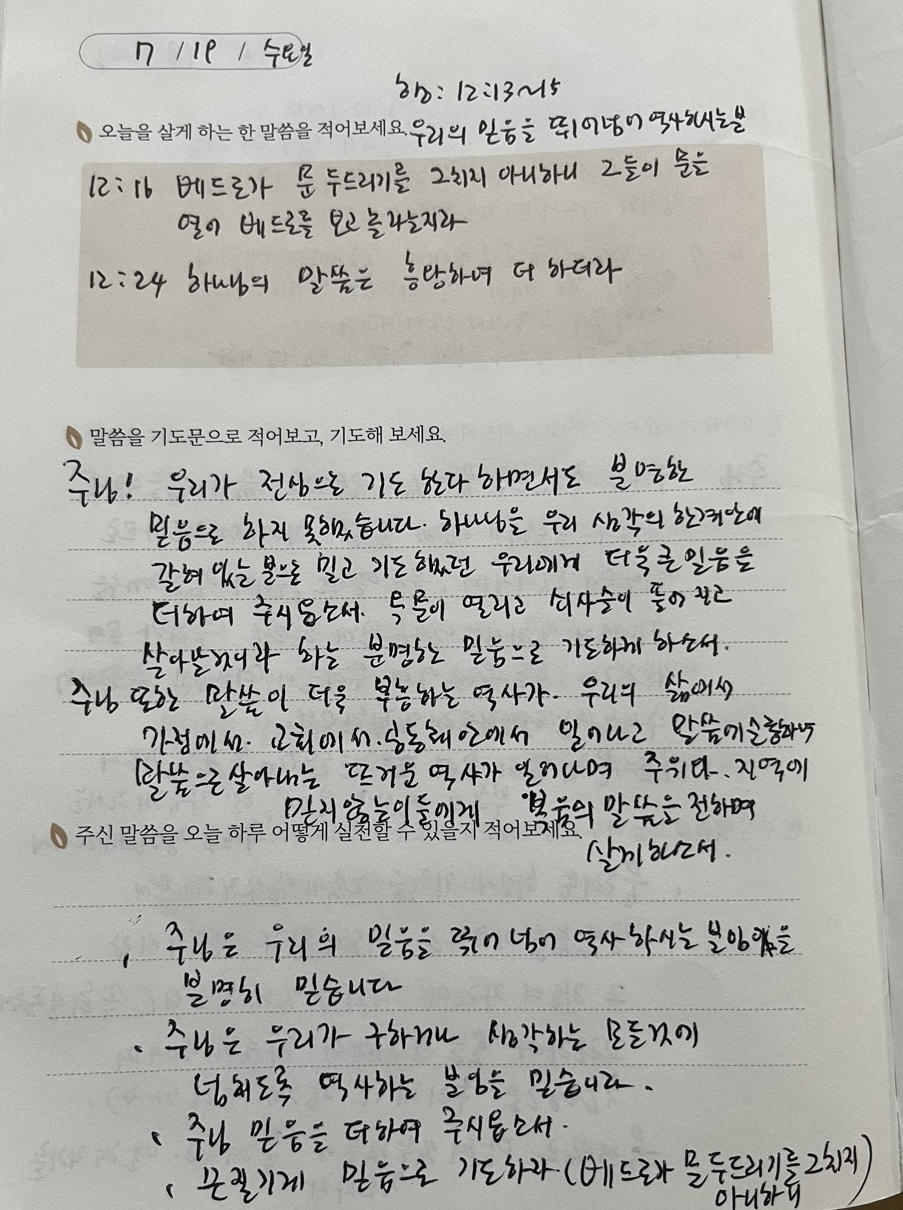 7 / 19 / 수요일
행: 12:13~15
오늘을 살게 하는 한 말씀을 적어보세요. 우리의 믿음을 뛰어넘어 역사하시는분
12:16 베드로가 문 두드리기를 그치지 아니하니 그들이 문을
열어 베드로를 보고 놀라는지라
12:24 하나님의 말씀은 흥왕하여 더 하더라
말씀을 기도문으로 적어보고, 기도해 보세요.
주님! 우리가 전심으로 기도 한다 하면서도 분명한
믿음으로 하지 못했습니다. 하나님을 우리 생각의 한계안에
갇혀 있는 분으로 믿고 기도했던 우리에게 더욱 큰 믿음을
더하여 주시옵소서. 옥문이 열리고 쇠사슬이 풀어 지고
하는 분명한 믿음으로 기도하게 하소서.
주님 또한 말씀이 더욱 부흥하는 역사가. 우리의 삶에서
가정에서. 교회에서. 일어나고 말씀에순종하며
말씀으로살아내는 뜨거운 역사가 일어나며 주위다. 지역에
믿지않는이들에게 복음의 말씀을 전하며
주신 말씀을 오늘 하루 어떻게 실천할 수 있을지 적어보세요.
살게하소서.
주님은 우리의 믿음을 뛰어 넘어 역사 하시는 분임을
분명히 믿습니다
주님은 우리가 구하거나 생각하는 모든것에
넘치도록 역사하는 분임을 믿습니다.
주님 믿음을 더하여 주시옵소서.
끈질기게 믿음으로 기도하라 (베드로가 문두드리기를그치지
아니하니)